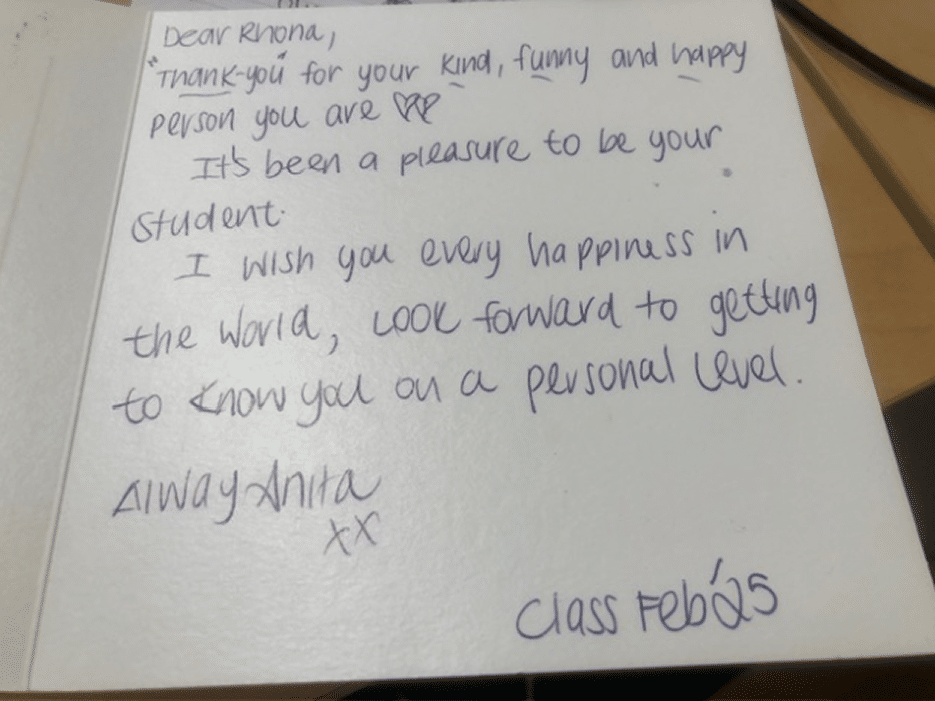 Dear Rhona,
"Thank-you" for your kind, funny and happy
person you are
It's been a pleasure to be your
student.
I wish you every happiness in
the world, look forward to getting
to know you on a personal level.
Alway Anita
xx
Class Feb '25